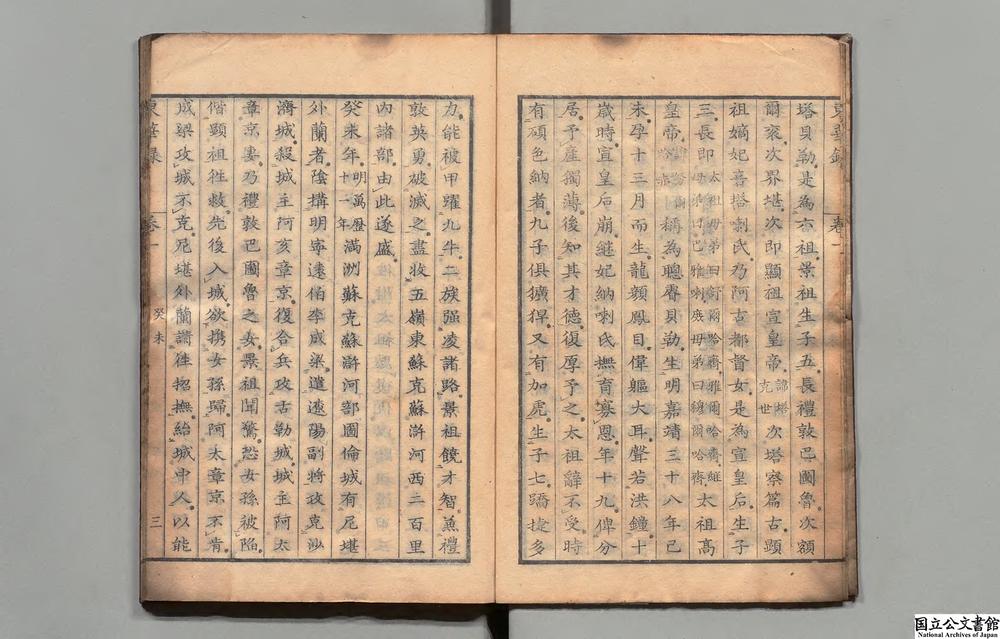 東華錄 卷一
塔貝勒是為六祖景祖生子五長禮敦巴圖魯次額
爾袞次界堪次即顯祖宣皇帝諱塔克世次塔察篇古顯
祖嫡妃喜塔喇氏乃阿古都督女是為宣皇后生子
三長即太祖母弟曰舒爾哈齊雅爾哈齊繼母弟曰巴雅喇庶母弟曰穆爾哈齊太祖高
皇帝稱為聰睿貝勒生明嘉靖三十八年己
未孕十三月而生龍顏鳳目偉軀大耳聲若洪鐘十
歲時宣皇后崩繼妃納喇氏撫育寡恩年十九俾分
居予產獨薄後知其才德復厚予之太祖辭不受時
有碩色納者九子俱獷悍又有加虎生子七蹻捷多
力能被甲躍九牛二族强凌諸路景祖饒才智兼禮
敦英勇破滅之盡收五嶺東蘇克蘇滸河西二百里
內諸部由此遂盛
癸未年明萬歷十一年滿洲蘇克蘇滸河部圖倫城有尼堪
外蘭者陰搆明寧遠伯李成梁遣遼陽副將攻克沙
濟城殺城主阿亥章京復合兵攻古勒城城主阿太
章京妻乃禮敦巴圖魯之女景祖聞驚恐女孫被陷
偕顯祖徃救先後入城欲携女孫歸阿太章京不肯
成梁攻城不克尼堪外蘭請徃招撫紿城中人以能
東華錄 卷一 癸未 三
国立公文書館
National Archives of Japan